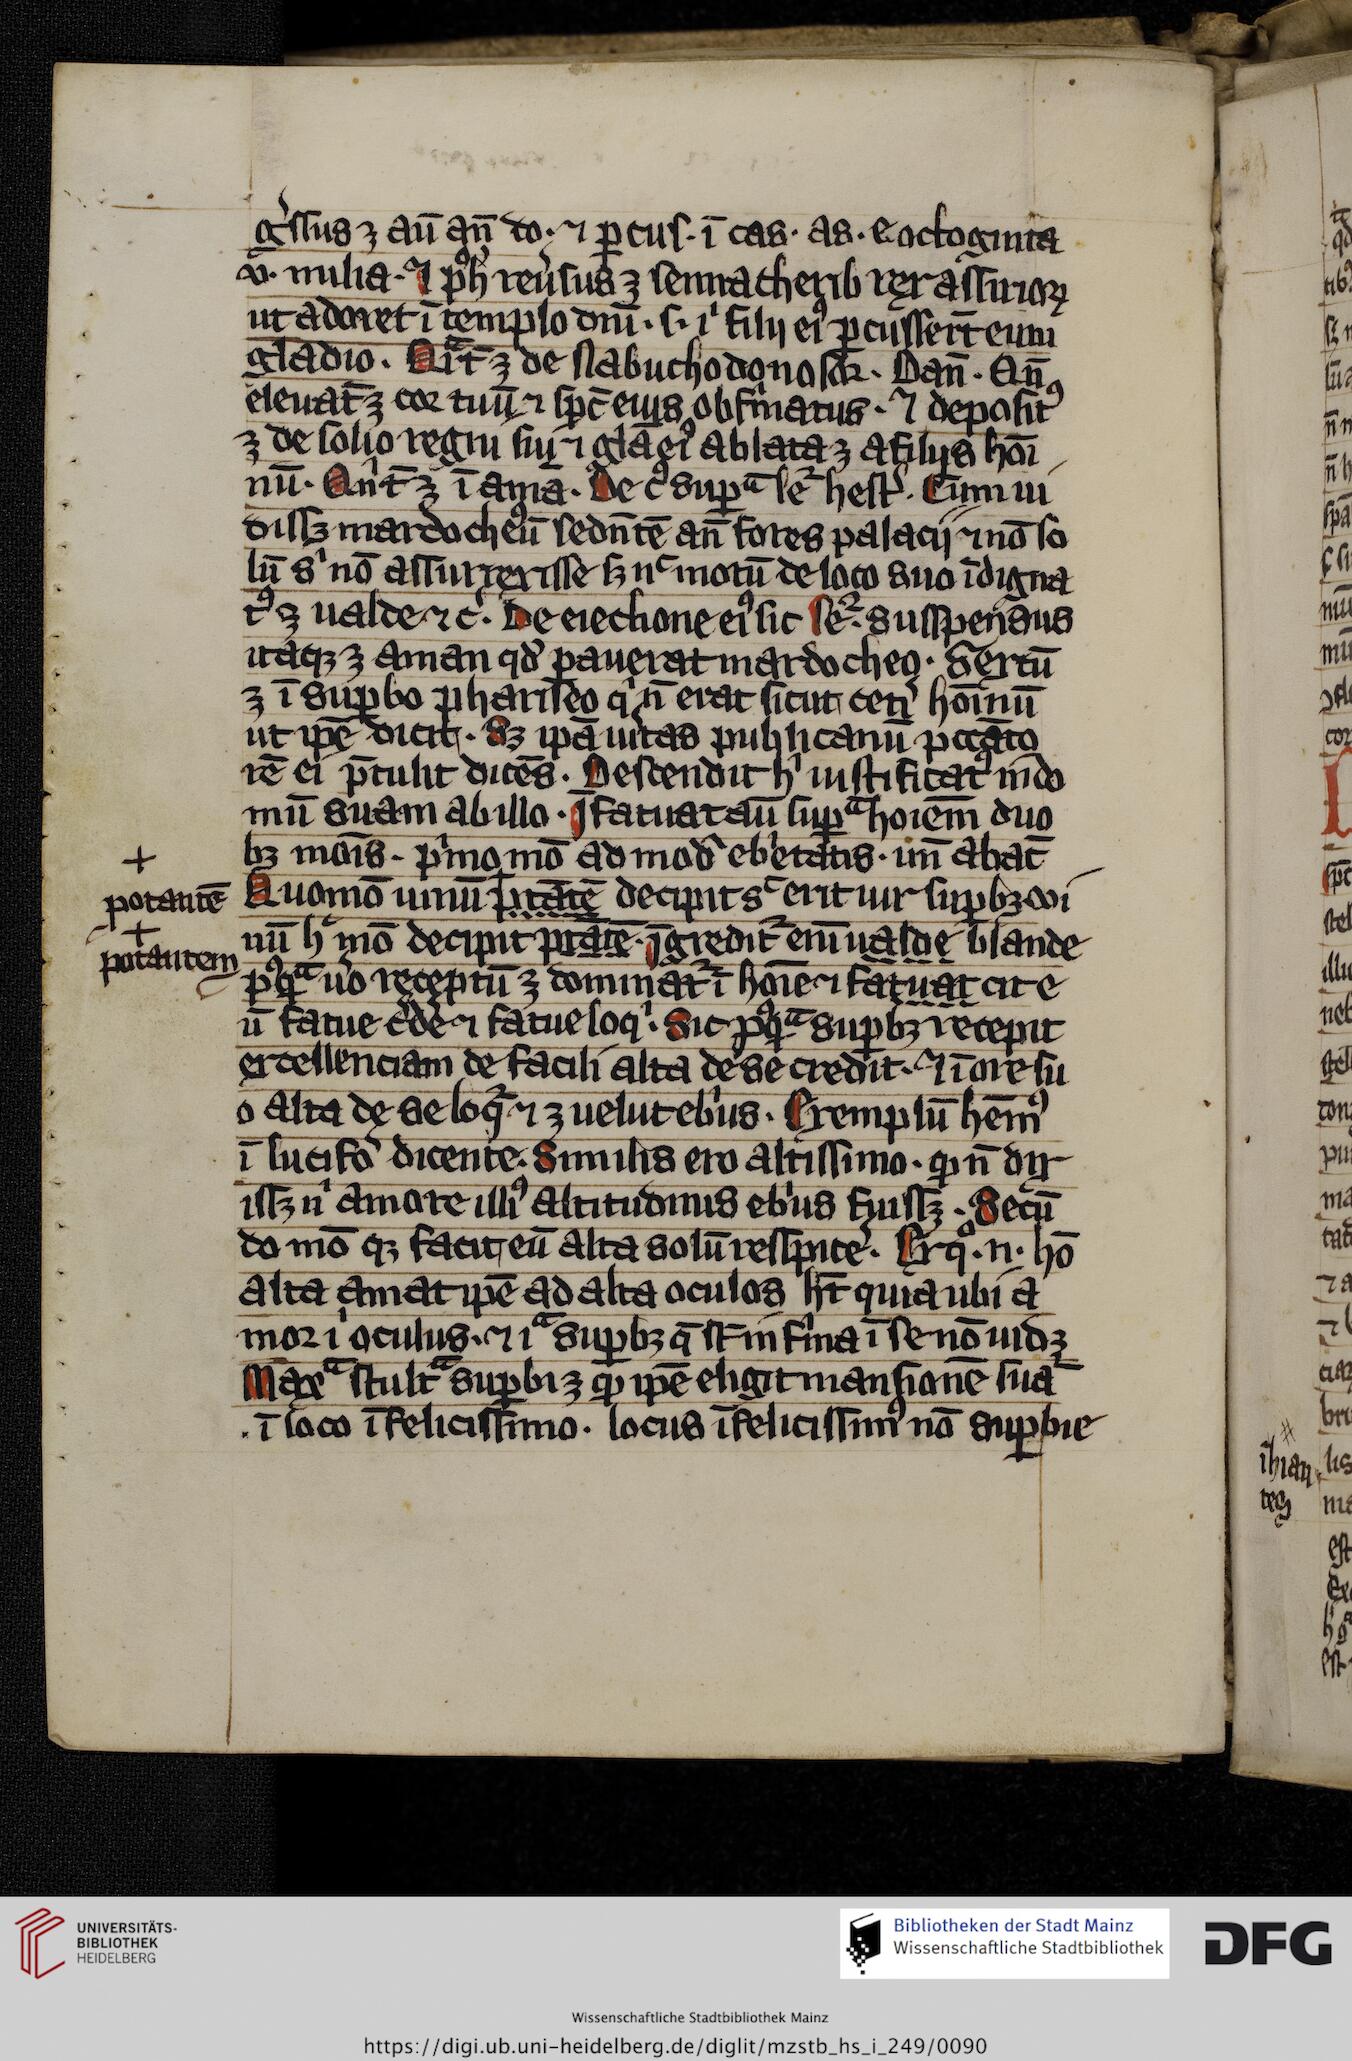 g̾ssus ʒ au̅ an̅ do · ⁊ p̲cus · i̅ cas · as · c octoginta
v · milia · ⁊ pꝰh̾ reu̾sus ʒ sennacherib rex assirioꝝ
ut adoret i̅ templo dn̅i · s · i̾ filij eiꝰ p̲cusser̅t eum
gladio · de nabuchodonosor · Dan̅ · Qn̅
eleuat̅ ʒ cor tuu̅ ⁊ sp̅c eius obfirmatus · ⁊ depositꝰ
ʒ de solio regni sui ⁊ gl̅a eiꝰ ablata ʒ a filijs ho̅i
nu̅ · i̅ ama̅ · De supᵃ hest̾ · Cum ui
dissʒ mardocheu̅ seden̅te̅ an̅ fores palacij ⁊ no̅ so
lu̅ s̾ no̅ assurrexisse sʒ nᶜ motu̅ de loco suo i̅digna
tꝰ ʒ ualde ⁊ c̾ · De eiectione eiꝰ sic · suspensus
itaqʒ ʒ aman qd̾ pauerat mardocheo ·
ʒ i̅ sup̲bo phariseo q̾ n̅ erat sicut cet̾i ho̅inu̅
ut ip̅e dicit · Sʒ ip̅a ueritas publicanu̅ pcc̅ato
re̅ ei p̅tulit dice̅s · Descendit h̾ iustificatꝰ in do
mu̅ suam ab illo · I̅fatuat au̅ sup̲ᵃ hoiem̅ duo
bʒ mo̅is · p̾mo mo̅ ad mod̾ eb̾etatis · un̅ abat̅
Quomo̅ uinu̅ p̅tate̅ decipit sᶜ erit uir sup̲bʒ · vi
nu̅ hᶜ mo̅ decipit p̅tate̅ · I̅greditʳ eni̅ ualde blande
pꝰqᵃ u̾o receptu̅ ʒ dominatʳ i̅ ho̅ie ⁊ fatuat cit e
u̅ fatue c̾de̾ ⁊ fatue loq̾ · Sic pꝰqᵃ sup̲bʒ recepit
excellenciam de facili alta de se credit · ⁊ i̅ ore su
o alta de se loqʳ ⁊ ʒ uelut eb̾us · Exemplu̅ hem̅ꝰ
i̅ lucif̾o dicente · Similis ero altissimo · qd̾ n̅ dix
issʒ n̾ amore illiꝰ altitudinis eb̾us fuissʒ · Secu̅
do mo̅ qʒ facit eu̅ alta solu̅ respice̾ · Ex qº · n · ho̅
alta amat ip̅e ad alta oculos ht̅ quia ubi a
mor i̾ oculus · ⁊ iᵃ sup̲bʒ q̅ st̅ infi̾ma i̅ se no̅ uidʒ
Maxᵃ stultᵃ sup̲bi ʒ qd̾ ip̅e eligit mansione̅ sua̅
i̅ loco i̅felicissimo · locus i̅felicissimꝰ no̅ sup̲bie
+
potante̅
+
potantem
i̅hian
tes
UNIVERSITÄTS-
BIBLIOTHEK
HEIDELBERG
Bibliotheken der Stadt Mainz
Wissenschaftliche Stadtbibliothek
DFG
Wissenschaftliche Stadtbibliothek Mainz
https://digi.ub.uni-heidelberg.de/diglit/mzstb_hs_i_249/0090